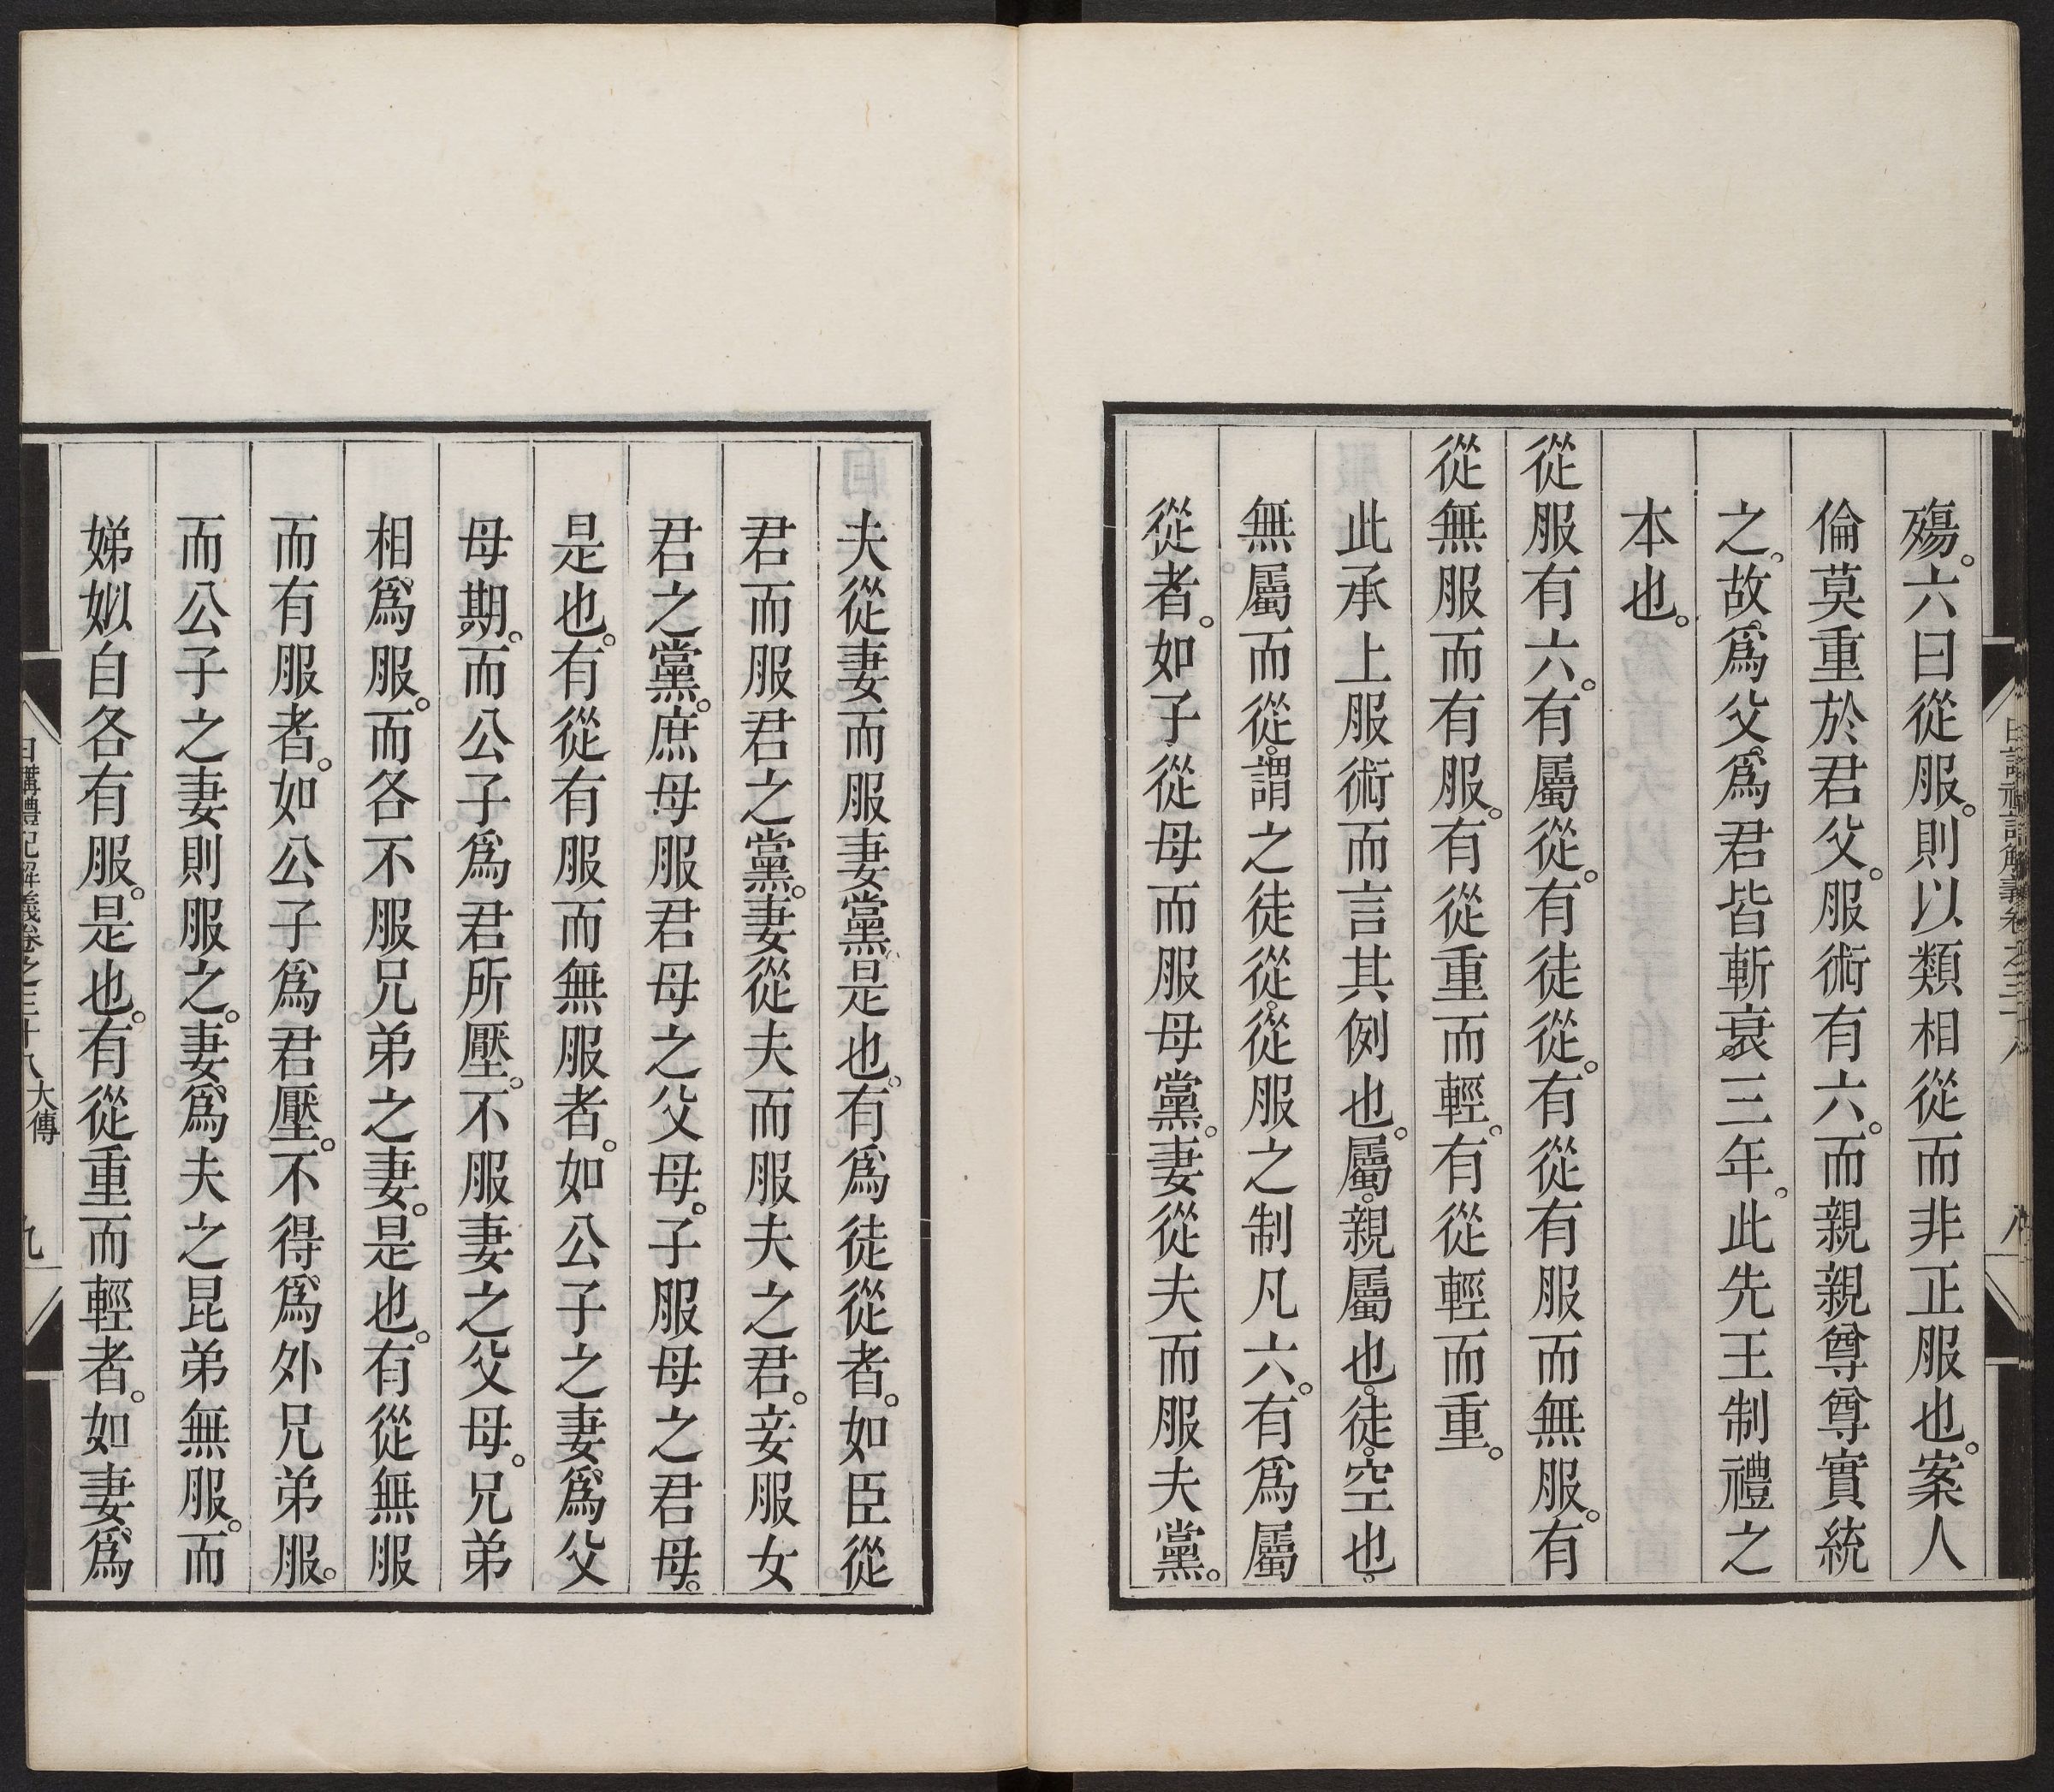 殤。六曰從服。則以類相從而非正服也。案人
倫莫重於君父。服術有六。而親親尊尊實統
之。故爲父爲君皆斬衰三年。此先王制禮之
本也。
從服有六。有屬從。有徒從。有從有服而無服。有
從無服而有服。有從重而輕。有從輕而重。
此承上服術而言其例也。屬。親屬也。徒。空也。
無屬而從。謂之徒從。從服之制凡六。有爲屬
從者。如子從母而服母黨。妻從夫而服夫黨。
夫從妻而服妻黨是也。有爲徒從者。如臣從
君而服君之黨。妻從夫而服夫之君。妾服女
君之黨。庶母服君母之父母。子服母之君母。
是也。有從有服而無服者。如公子之妻爲父
母期。而公子爲君所壓。不服妻之父母。兄弟
相爲服。而各不服兄弟之妻。是也。有從無服
而有服者。如公子爲君壓。不得爲外兄弟服。
而公子之妻則服之。妻爲夫之昆弟無服。而
娣姒自各有服。是也。有從重而輕者。如妻爲
日講禮記解義卷之三十八 大傳 九